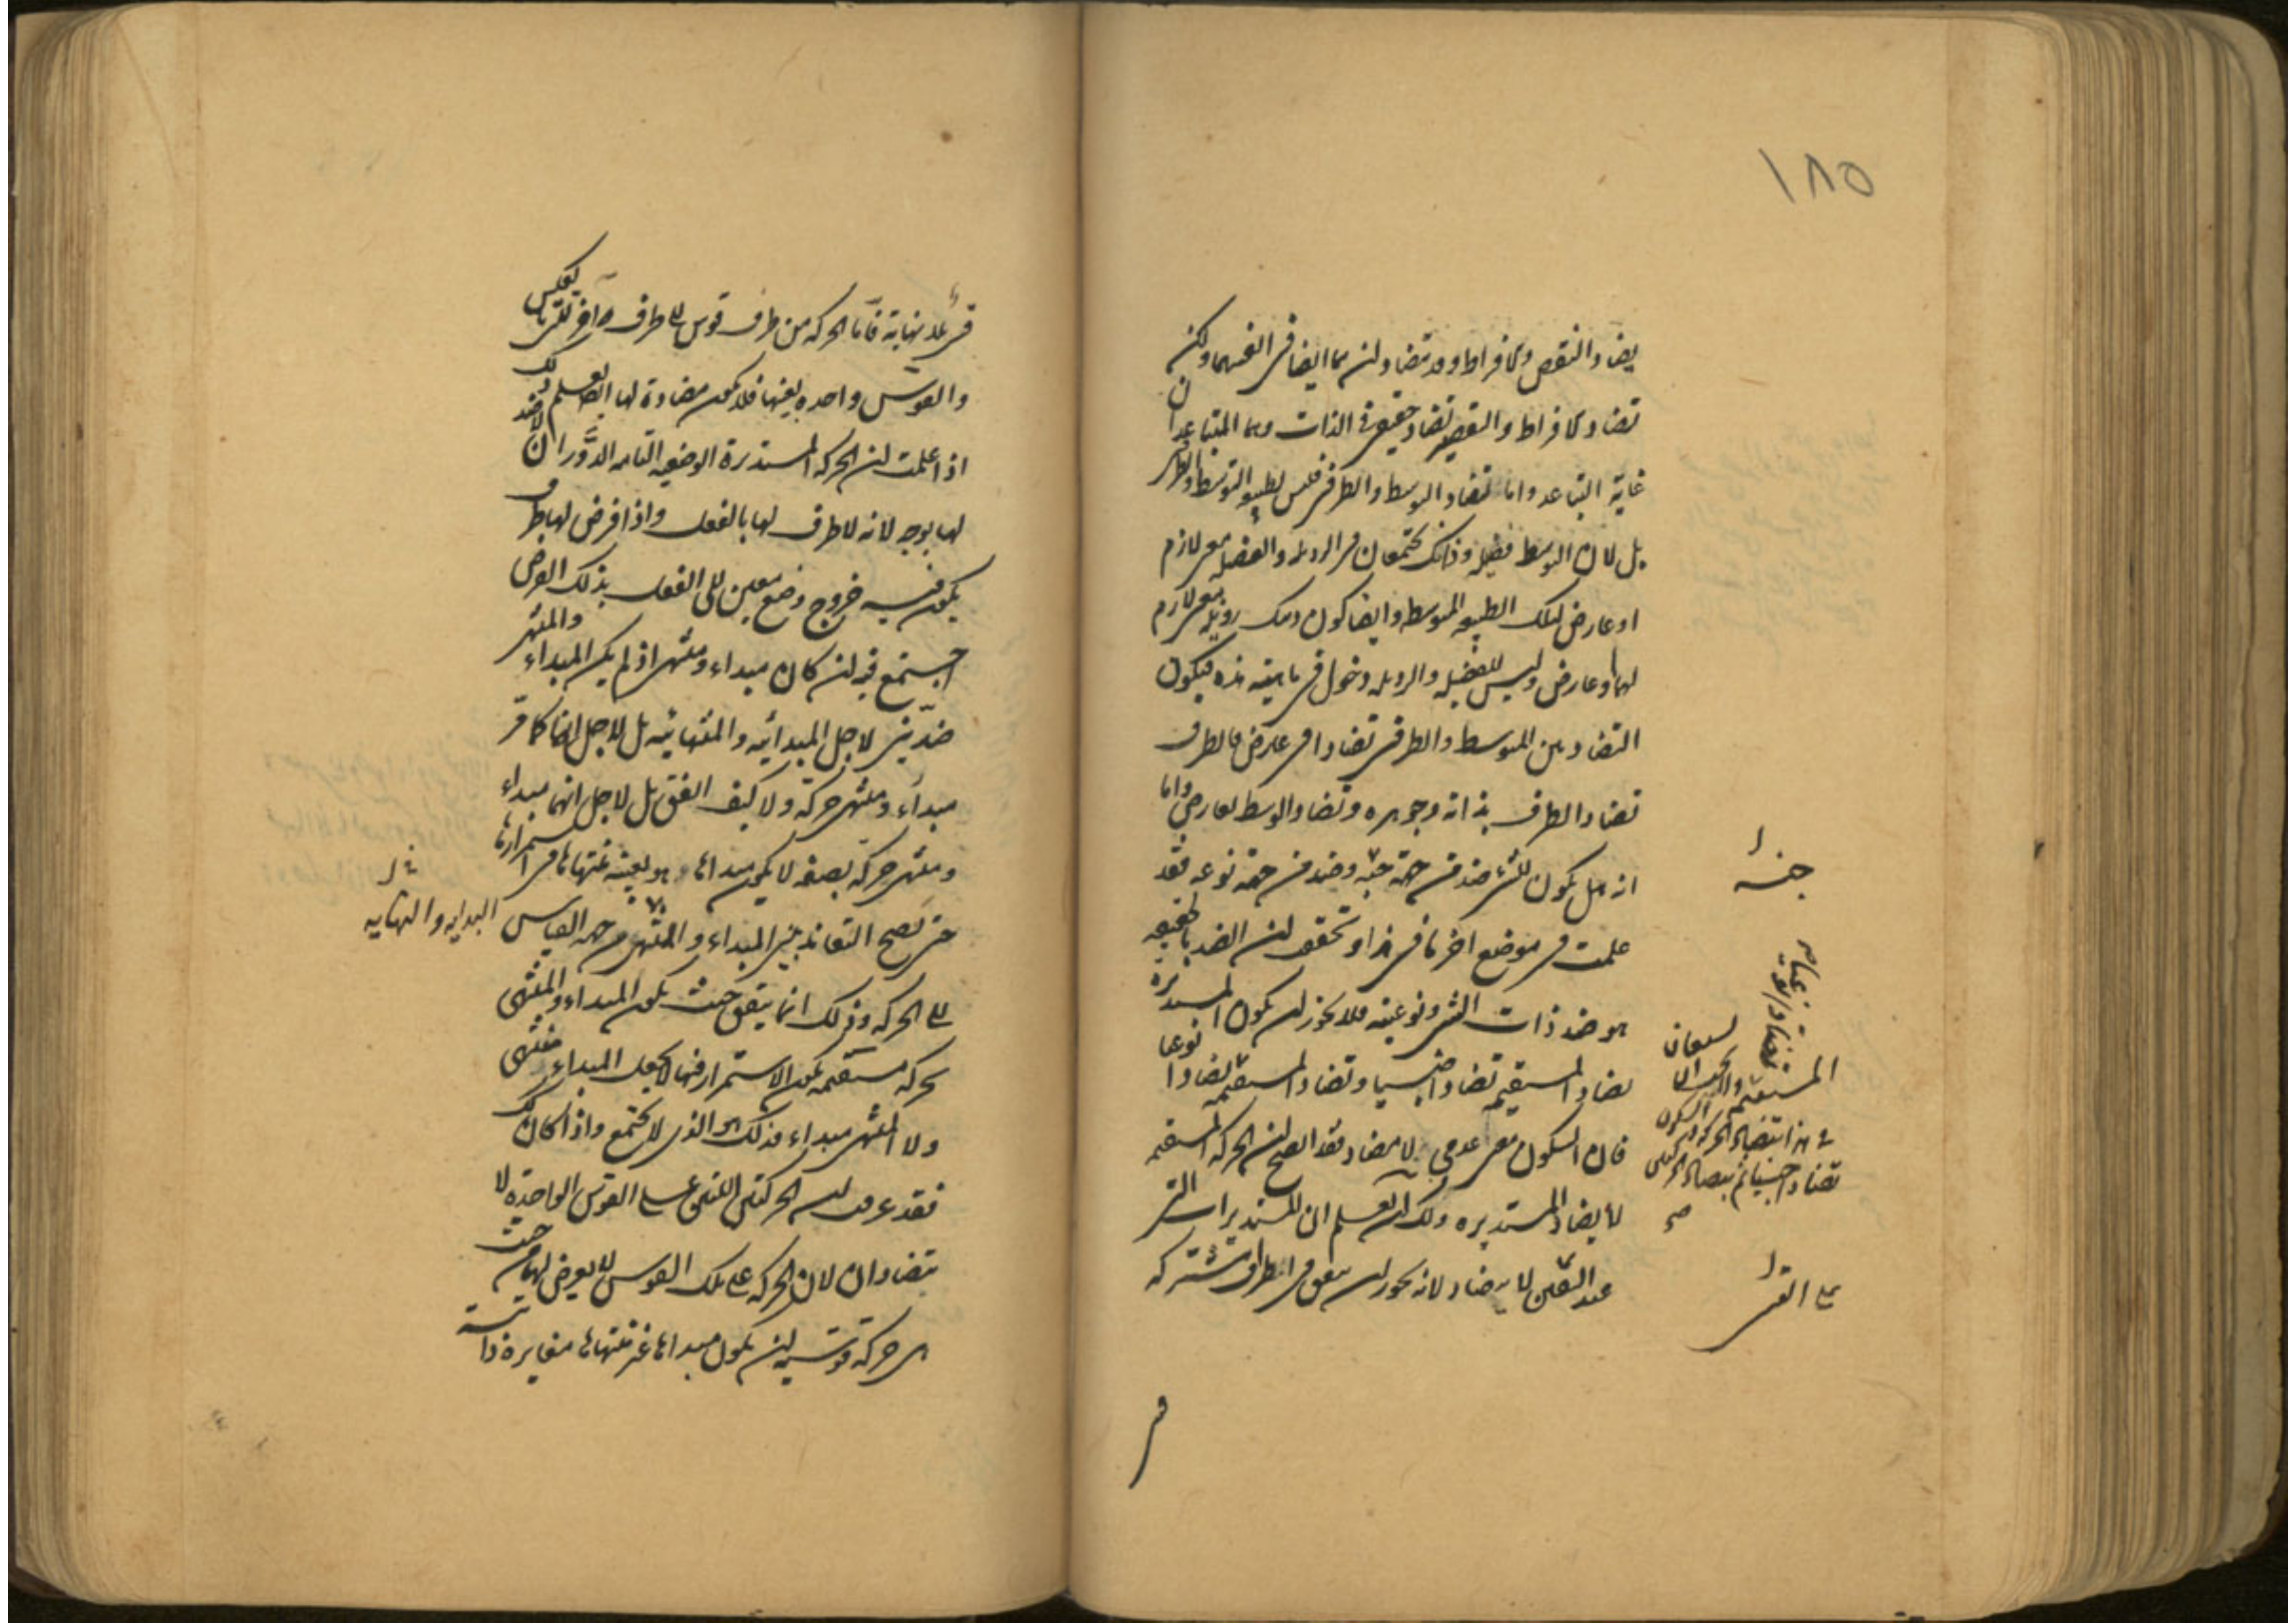 ١٨٥
يضاد النقص والافراط وقد تضادان هما ايضا في انفسهما ولكن
تضاد الافراط والنقص تضاد حقيقي في الذات وهما المتباعدان
غاية التباعد واما تضاد الوسط والطرفين فليس لطبيعة التوسط والطرف
بل لان الوسط فضيلة وذانك يجتمعان في الرذيلة والفضيلة معنى لازم
او عارض لتلك الطبيعة المتوسطة وايضا كون ذينك رذيلة معنى لازم
لهما او عارض وليس للفضيلة والرذيلة دخول في ماهية هذه فيكون
التضاد بين المتوسط والطرفين تضادا في عارض فالطرف
تضاد الطرف بذاته وجوهره وتضاد الوسط لعارض واما
انه هل يكون للشيء ضد من جهة جنسه وضد من جهة نوعه فقد
علمت في موضع اخر ما في هذا وتحقق ان الضد بالحقيقة
هو ضد ذات الشيء ونوعيته فلا يجوز ان يكون المستديرة
تضاد المستقيمة تضادا جنسيا وتضاد المستقيمة تضادا نوعيا
فان السكون معنى عدمي لا مضاد فقد اتضح ان الحركة المستقيمة
لا يضاد المستديرة وكذلك تعلم ان المستديرات التي
عند القسي لا يتضاد لانه يجوز ان يتفق في اطراف مشتركة
جنسه
المستقيمة
تضادا جنسيا ثم يتضاد الحركتان
على القسي
في
قسي بلا نهاية فاما الحركة من طرف قوس الى طرف اخر لتي يعكس
والقوس واحدة بعينها فلا يكون مضادة لها ايضا تعلم ذلك
اذا علمت ان الحركة المستديرة الوضعية التامة الدوران لا ضد
لها بوجه لانه لا طرف لها بالفعل واذا فرض لها طرف
يكون فيه خروج وضع معين الى الفعل بذلك الفرض
اجتمع فيه ان كان مبداء ومنتهى اذ لم يكن المبداء والمنتهى
ضدين لاجل المبدائية والمنتهائية بل لاجل انهما كانا في
مبداء ومنتهى حركة ولا كيف اتفق بل لاجل انهما مبداء
ومنتهى حركة بصفة لا يكون مبداها هو بعينه منتهاها في استمرارها
حتى تصح التعاند بين المبداء والمنتهى من جهة القياس
البداية والنهاية
الى الحركة وذلك انما يتفق حيث يكون المبداء والمنتهى
حركة مستقيمة يكون الاستمرار فيها لا يجعل المبداء منتهى
ولا المنتهى مبداء فذلك هو الذي لا يجتمع واذا كان كذلك
فقد عرف ان الحركتين اللتين على القوس الواحدة لا
يتضادان لان الحركة على تلك القوس لا يعرض لهما من حيث
هي حركة قوسية ان يكون مبداها غير منتهاها مغايرة ذاتية